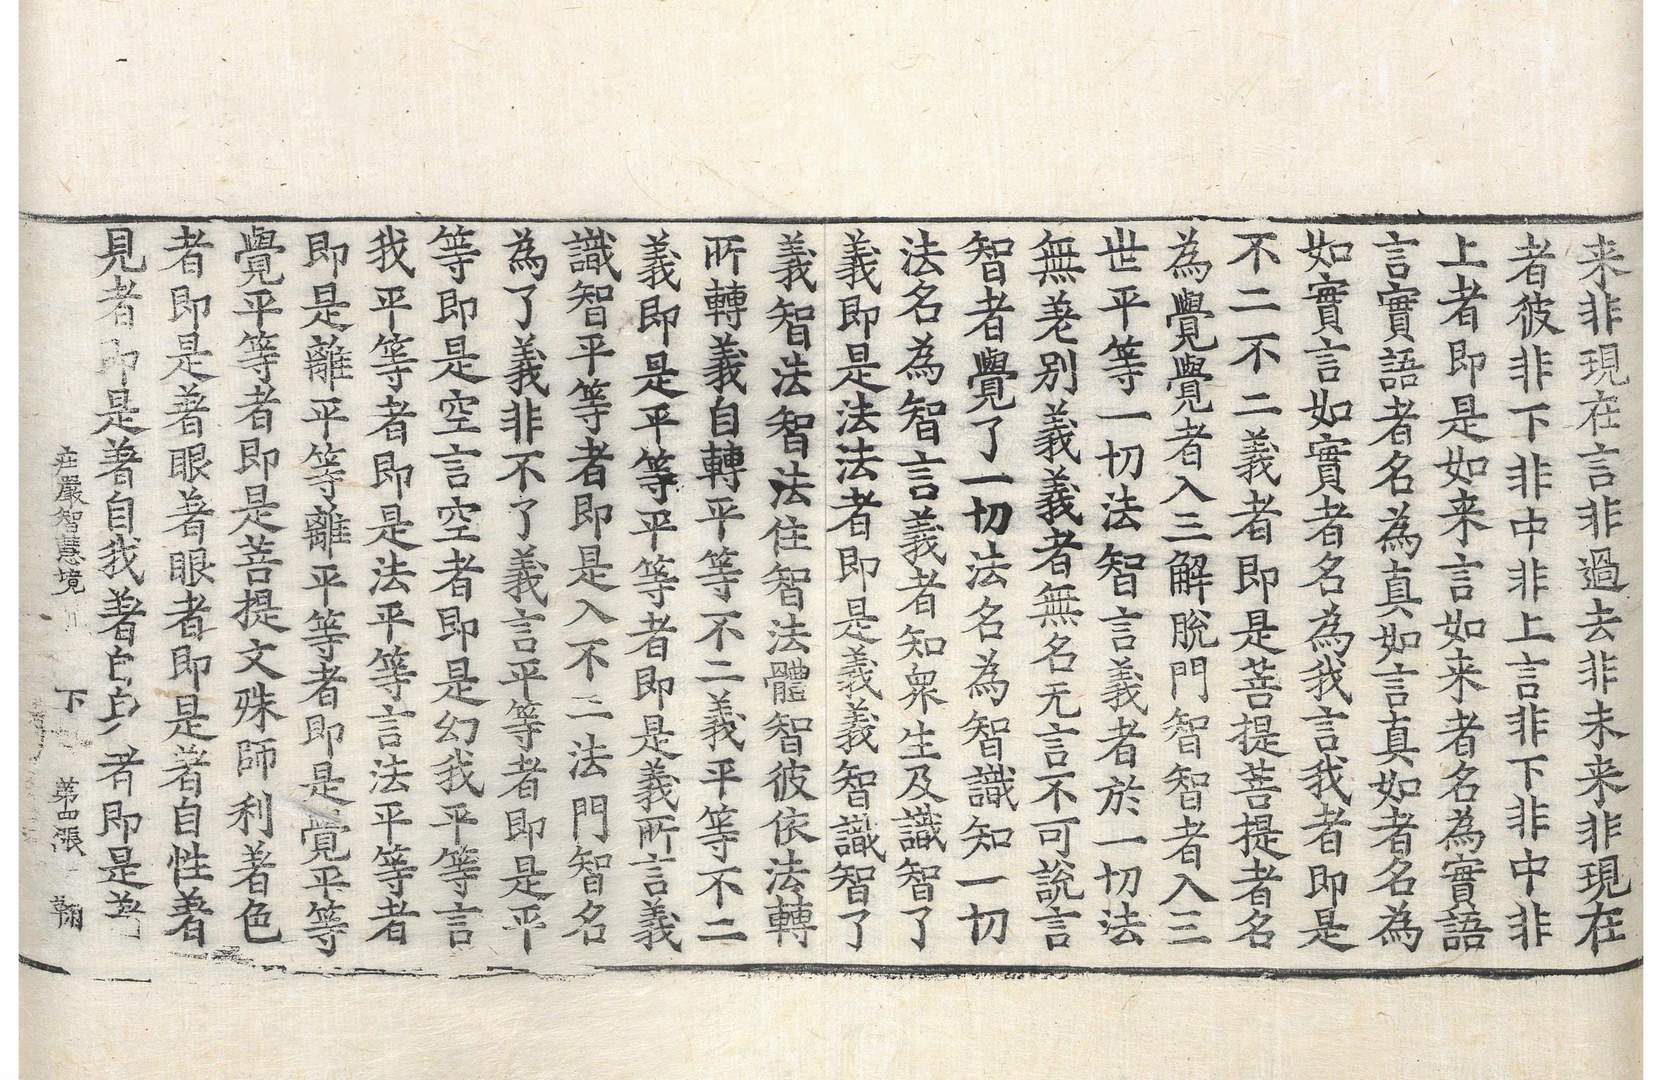 来非現在言非過去非未来非現在
者彼非下非中非上言非下非中非
上者即是如来言如来者名為實語
言實語者名為真如言真如者名為
如實言如實者名為我言我者即是
不二不二義者即是菩提菩提者名
為覺覺者入三解脫門智智者入三
世平等一切法智言義者於一切法
無差別義義者無名无言不可說言
智者覺了一切法名為智識知一切
法名為智言義者知衆生及識智了
義即是法法者即是義義智識智了
義智法智法住智法體智彼依法轉
所轉義自轉平等不二義平等不二
義即是平等平等者即是義所言義
識智平等者即是入不二法門智名
為了義非不了義言平等者即是平
等即是空言空者即是幻我平等言
我平等者即是法平等言法平等者
即是離平等離平等者即是覺平等
覺平等者即是菩提文殊師利著色
者即是著眼著眼者即是著自性著
見者即是著自我著者即是
莊嚴智慧境 下 第四張 翰